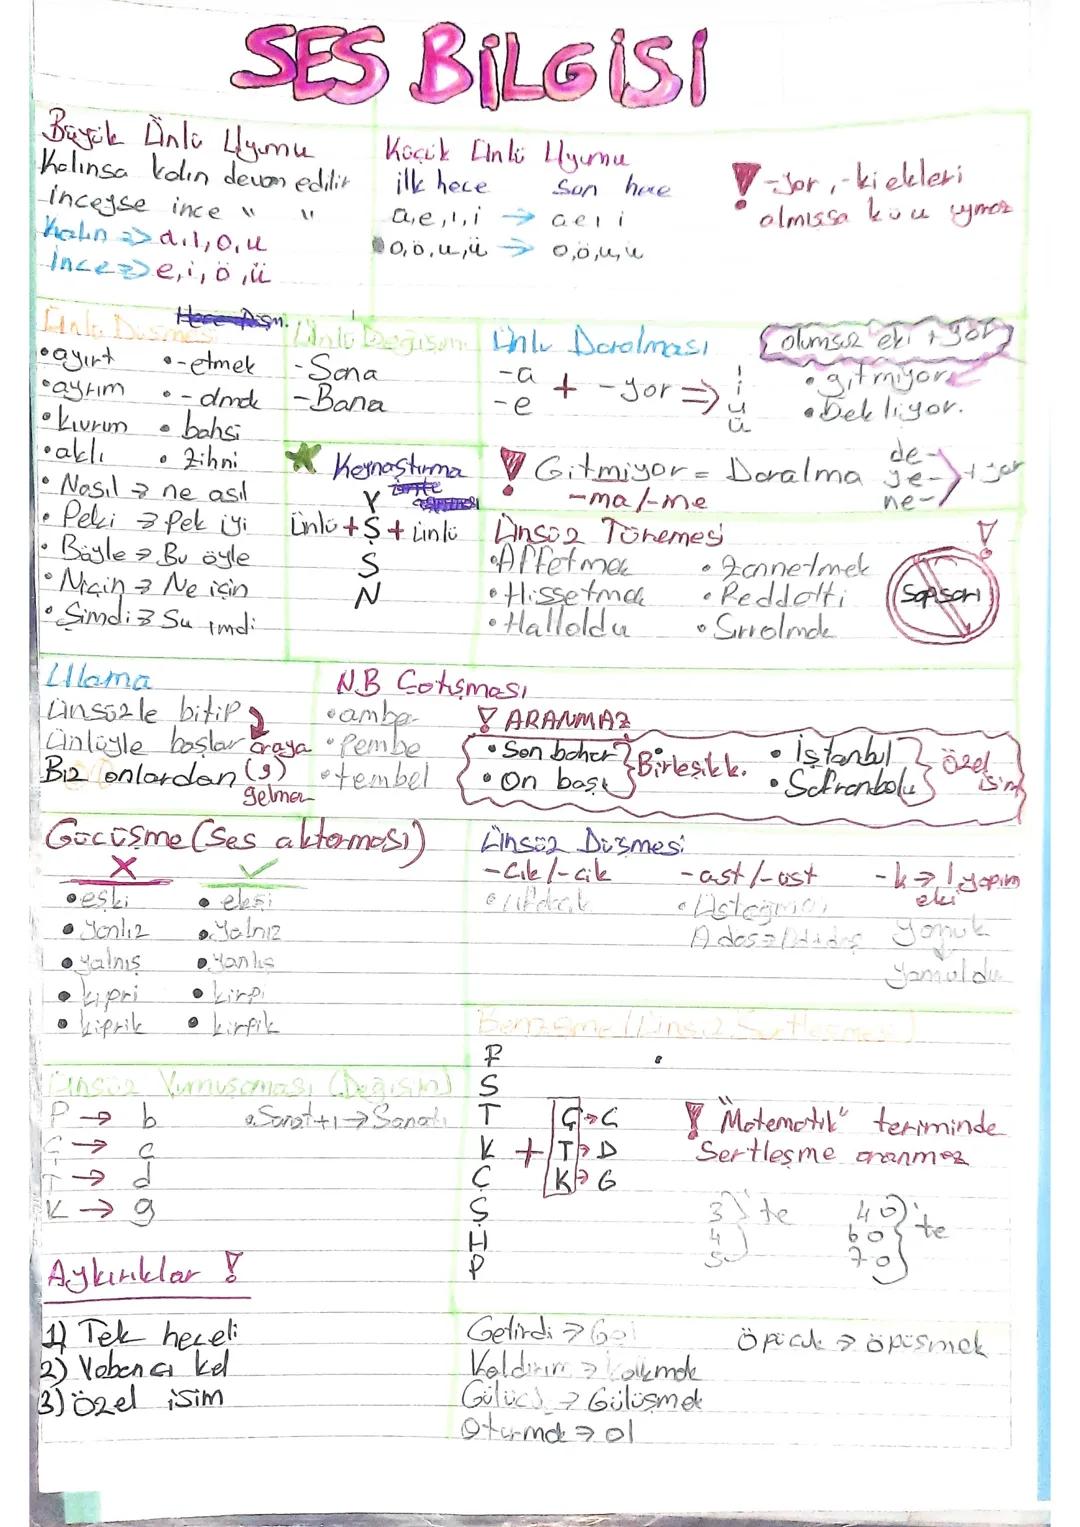 SES BİLGİSİ
Büyük Ünlü Uyumu
Kalınsa kalın devam edilir
İnceyse ince " "
Kalın => a,ı,o,u
İnce => e,i,ö,ü
Küçük Ünlü Uyumu
ilk hece Son hece
a,e,ı,i → a e ı i
o,ö,u,ü → o,ö,u,ü
! -yor, -ki ekleri
olmışsa küu uymaz
Ünlü Düşmesi
• ayırt • -etmek
• ayrım • -olmak
• kıvrım • bahsi
• aklı • zihni
• Nasıl → ne asıl
• Peki → Pek iyi
• Böyle → Bu öyle
• Niçin → Ne için
• Şimdi → Şu imdi
Ünlü Değişimi
-Sana
-Bana
Kaynaştırma
Y
Ünlü + Ş + ünlü
S
N
Ünlü Daralması
-a
-e + -yor => ı i u ü
olumsuz eki + yor
• gitmiyor
• Bekliyor.
! Gitmiyor = Daralma
-ma/-me
de-
ye- + yor
ne-
Ünsüz Türemesi
• Affetmek • Zannetmek
• Hissetmek • Reddetti
• Halloldu • Sırrolmak
! Sapsarı
Ulama
Ünsüzle bitip
Ünlüyle başlar araya
Biz onlardan (g)
gelmez
N.B Çatışması
• amba
• Pembe
• tembel
! ARANMAZ
• Son bahar
• On başı
Birleşik k.
• İstanbul
• Safranbolu
Özel isim
Göçüşme (Ses aktarması)
X ✓
• eşki • ekşi
• Yanlız • Yalnız
• yalnış • Yanlış
• kipri • kirpi
• kiprik • kirpik
Ünsüz Düşmesi
-cık/-cik -ast/-üst -k → 1 yapım
eki
• Üsteğmen
Yamuk
Yamuldu
Ünsüz Yumuşaması (Değişim)
P → b • Sanat+ı → Sanatı
Ç → c
T → d
K → g
Benzeşme (Ünsüz Sertleşmesi)
F
S
T
K
Ç
Ş
H
P
+
Ç → C
T → D
K → G
! "Matematik" teriminde
Sertleşme aranmaz
3
4
5
'te
40
60
70
'te
Aykırılıklar !
1) Tek heceli
2) Yabancı kel
3) Özel isim
Getirdi →
Kaldırım → kalkmak
→ Gülüşmek
Oturmak → ol
Öpücük → öpüşmek